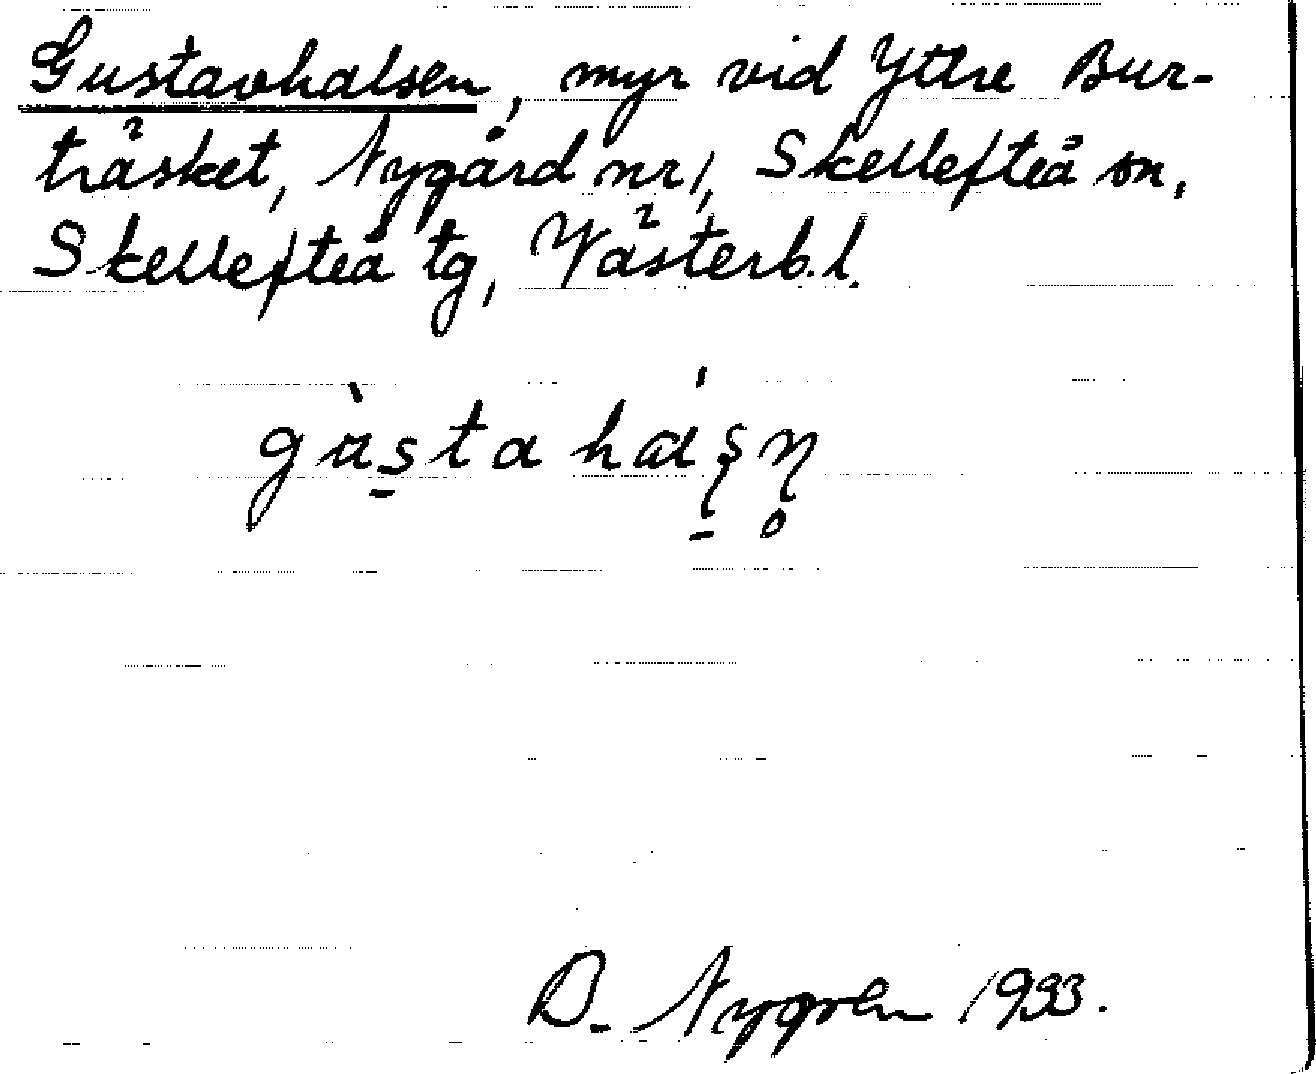 Gustavhalsen, myr vid Yttre Bur-
träsket, Nygård nr 1, Skellefteå sn,
Skellefteå tg, Västerb. l.
B. Nygren 1933.